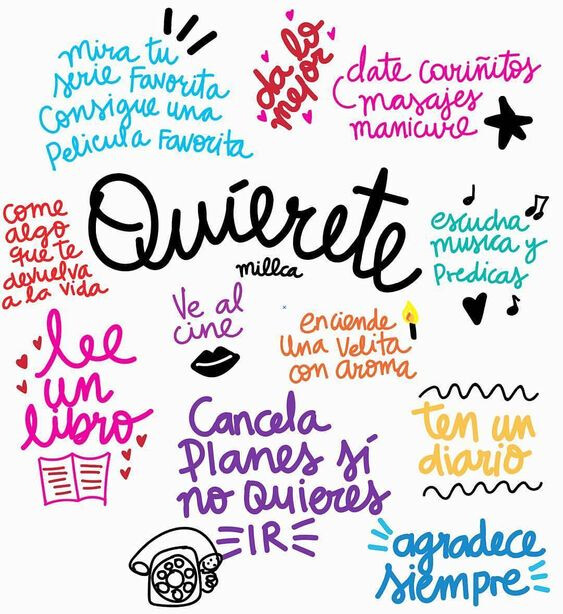 mira tu
serie Favorita
Consigue una
Pelicula Favorita
da lo
mejor
date cariñitos
masajes
manicure
Quiérete
millca
come
algo
que te
devuelva
a la vida
escucha
musica y
Predicas
Ve al
cine
enciende
una velita
con aroma
lee
un
libro
Cancela
Planes sí
no Quieres
IR
ten un
diario
agradece
siempre